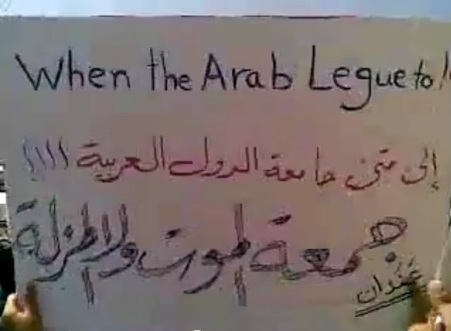 When the Arab Legue to
إلى متى جامعة الدول العربية !!!!
جمعة الموت ولا المزلة
عندان